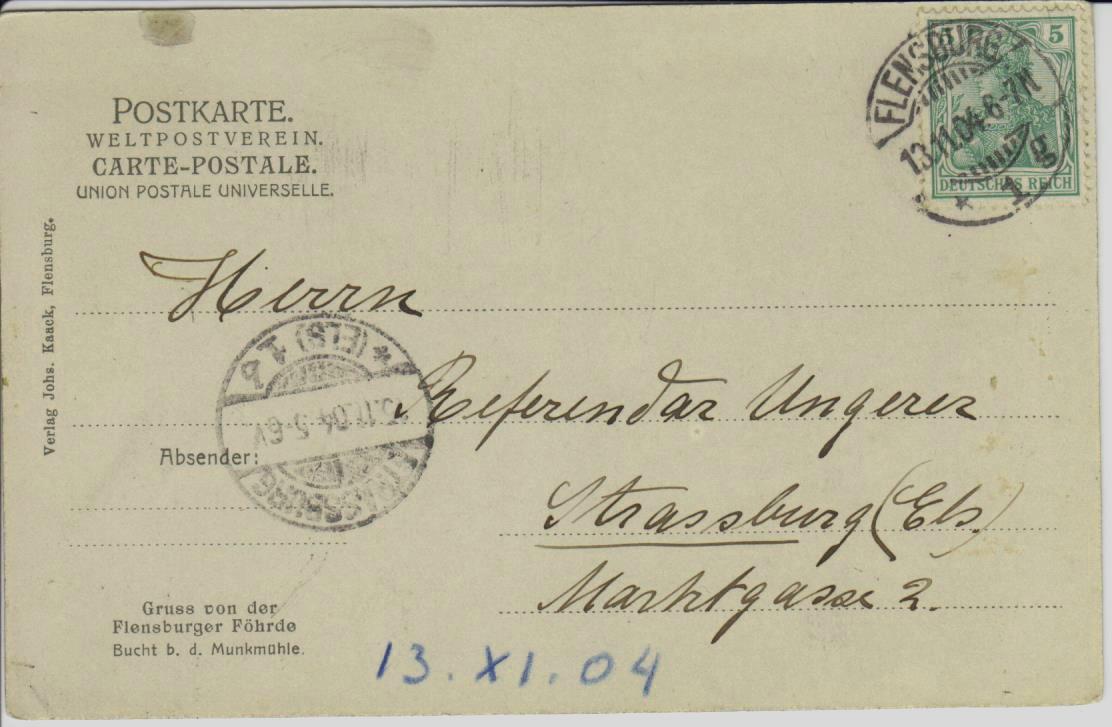 POSTKARTE.
WELTPOSTVEREIN.
CARTE-POSTALE.
UNION POSTALE UNIVERSELLE.
5
DEUTSCHES REICH
FLENSBURG
13.11.04.6-7N
* 1 g
Verlag Johs. Kaack, Flensburg.
Herrn
Referendar Ungerer
Strassburg (Els.)
Marktgasse 2.
STRASSBURG
15.11.04.5-6V
* (ELS) 1
Absender:
Gruss von der
Flensburger Föhrde
Bucht b. d. Munkmühle.
13. XI. 04